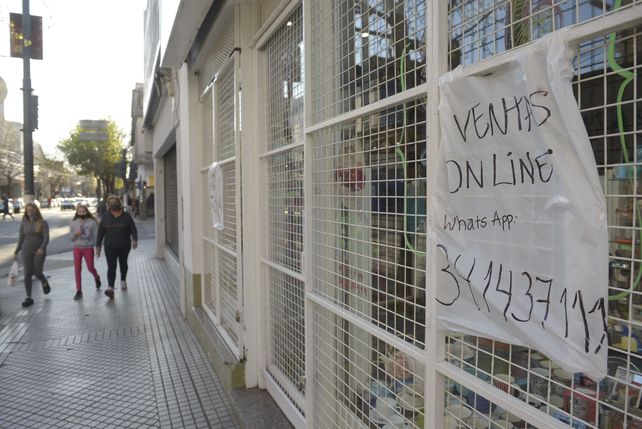 VENTAS
ON LINE
WhatsApp:
3414371111